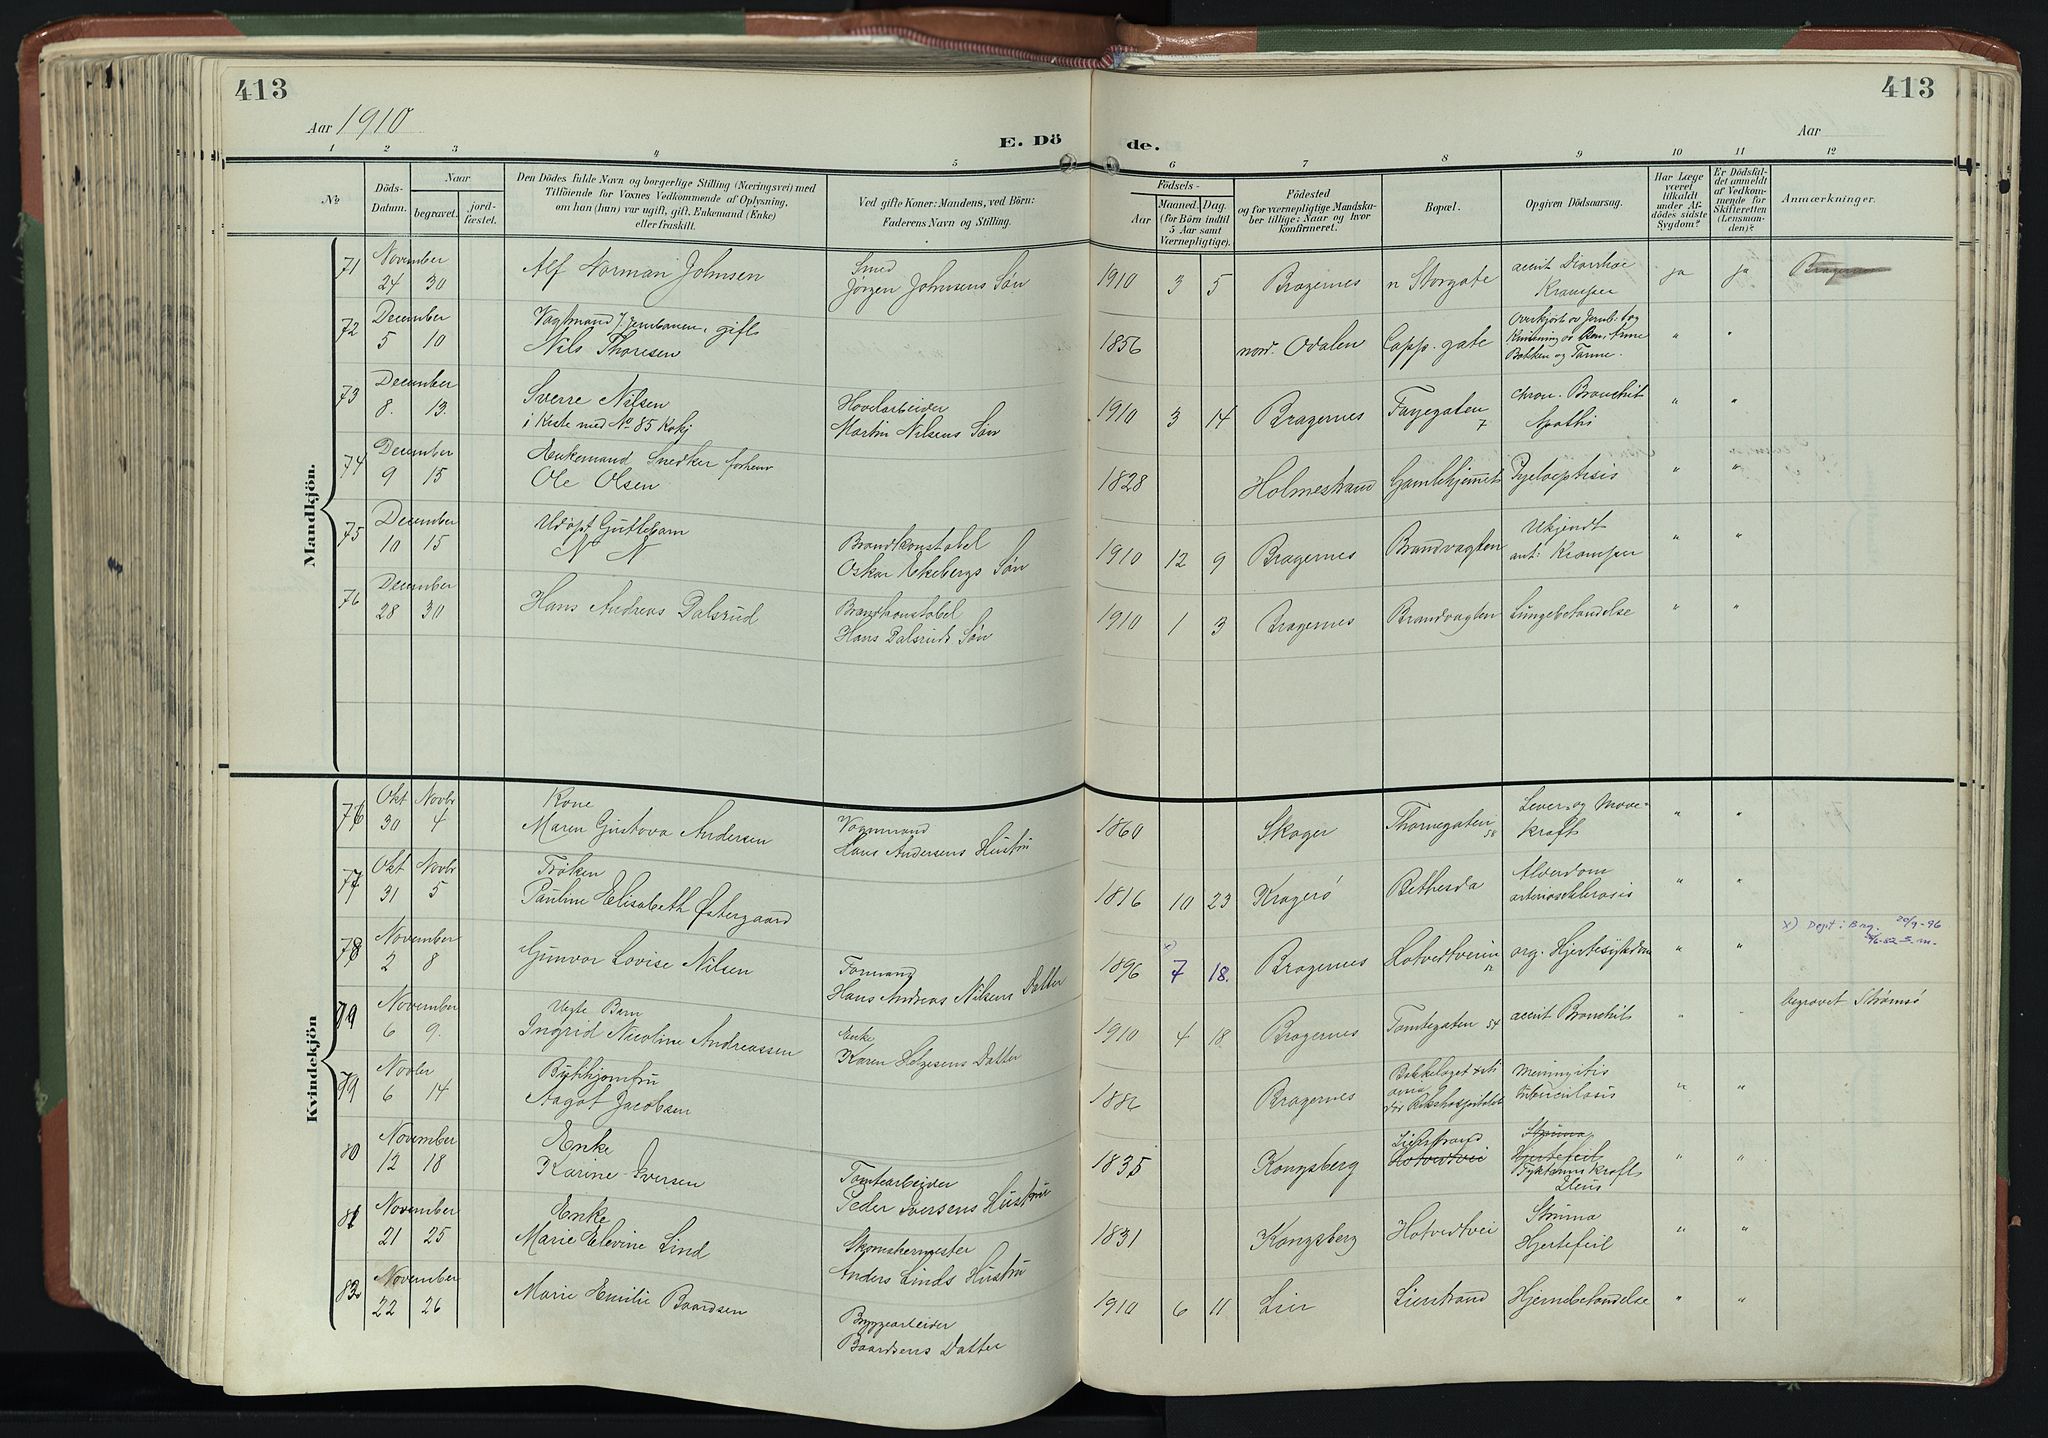 413
413
Aar 1910
E. Döde.
Aar
1 2 3 4 5 6 7 8 9 10 11 12
No
Döds-
Datum.
Naar
begravet.
jord-
fæstet.
Den Dödes fulde Navn og borgerlige Stilling (Næringsvei) med
Tilföiende for Voxnes Vedkommende af Oplysning,
om han (hun) var ugift, gift, Enkemand (Enke)
eller fraskilt.
Ved gifte Koner: Mandens, ved Börn:
Faderens Navn og Stilling.
Födsels-
Aar
Maaned. Dag.
(for Börn indtil
5 Aar samt
Værnepligtige).
Födested
og for værnepligtige Mandska-
ber tillige: Naar og hvor
konfirmeret.
Bopæl.
Opgiven Dödsaarsag.
Har Læge
været
tilkaldt
under Af-
dödes sidste
Sygdom?
Er Dödsfal-
det anmeldt
af Vedkom-
mende for
Skifteretten
(Lensman-
den)?
Anmærkninger.
Mandkjön.
71 November Alf Norman Johnsen Smed
24 30 Jørgen Johnsens Søn 1910 3 5 Bragernes n Storgate acut Diarrhoe Kramper ja ja Bragernes
72 December Vagtmand v. Jernbanen, gift
5 10 Nils Thoresen 1856 nord. Odalen Capp. gate Overkjørt av Jernb. tog
Knusning av Ben, Arme
Bækken og Tarme. " "
73 December Sverre Nilsen Høvelarbeider
8. 13. i Kiste med No 85 Kvkj Martin Nilsens Søn 1910 3 14 Bragernes Fayegaten 7 chron. Bronchit
Apathi " "
74 December Enkemand Snedker forhenv
9 15 Ole Olsen 1828 Holmestrand Gamlehjemmet Pyeloeptisis " "
75 December Udøpt Guttebarn Brandkonstabel
10 15 N N Oskar Ekebergs Søn 1910 12 9 Bragernes Brandvagten Ukjendt
ant: Kramper " "
76 December Hans Andreas Dalsrud Brandkonstabel
28 30 Hans Dalsruds Søn 1910 1 3 Bragernes Brandvagten Lungebetændelse " "
Kvindekjön
76 Okt Novbr Kone Vognmand
30 4 Maren Gustava Andersen Hans Andersens Hustru 1860 Skoger Thornegaten 58 Lever- og Mave-
kræft " "
77 Okt Novbr Frøken
31 5 Pauline Elisabeth Østergaard 1816 10 23 Kragerø Bethesda Alderdom
arteriosclerosis " "
78 November Gunvor Lovise Nilsen Formand
2 8 Hans Andreas Nilsens Datter 1896 x) 7 18. Bragernes Hotvedtveien org. Hjertesykdom " " x) Døpt i Brag. 20/9-96
79 November Uegte Barn Enke
6 9. Ingrid Nicoline Andreassen Karen Helgesens Datter 1910 4 18 Bragernes Tomtegaten 54 acut Bronchit " " begravet Strømsø
79 Novbr
6 14 Aagot Jacobsen 1886 Bragernes
død Rikshospitalet Meningitis
tuberculosis " "
80 November Enke Tomtearbeider
12 18 Karine Iversen Peder Iversens Hustru 1835 Kongsberg Lierstrand
Hotvedtvei Struma
Hjertefeil
Tyktarmskræft
Ileus " "
81 November Enke Skomakermester
21 25 Marie Elevine Lind Anders Linds Hustru 1831 Kongsberg Hotvedtvei Struma
Hjertefeil " "
82 November Marie Emilie Baardsen Bryggearbeider
22 26 Baardsens Datter 1910 6 11 Lier Lierstrand Hjernebetændelse " "